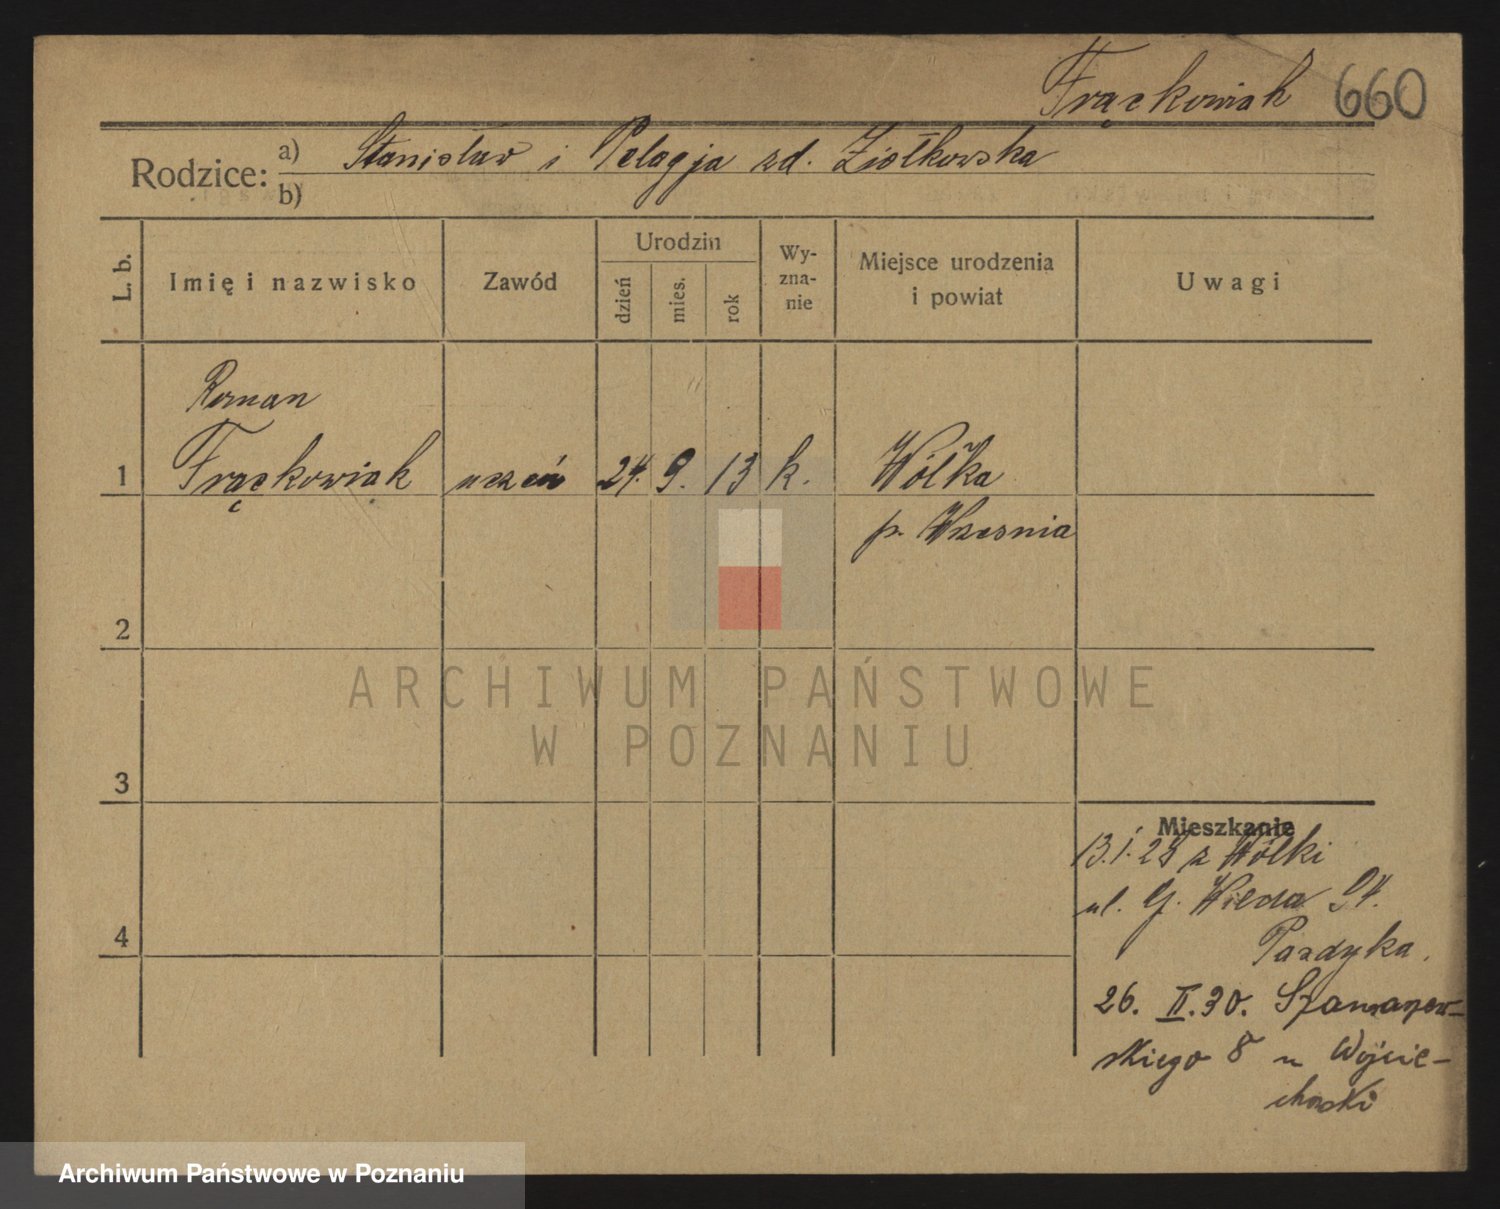 Frąckowiak 660
Rodzice: a) Stanisław i Pelagja zd. Ziółkowska
b)
L. b.
Imię i nazwisko
Zawód
Urodzin
dzień
mies.
rok
Wy-
zna-
nie
Miejsce urodzenia
i powiat
Uwagi
Roman
1 Frąckowiak uczeń 24. 9. 13 k. Wólka
p. Września
2
3
4
Mieszkanie
13.1.28 z Wólki
ul. G. Wilda 94.
Pazdyka.
26. II. 30. Szamarzew-
skiego 8 u Wojcie-
chowski
ARCHIWUM PAŃSTWOWE
W POZNANIU
Archiwum Państwowe w Poznaniu